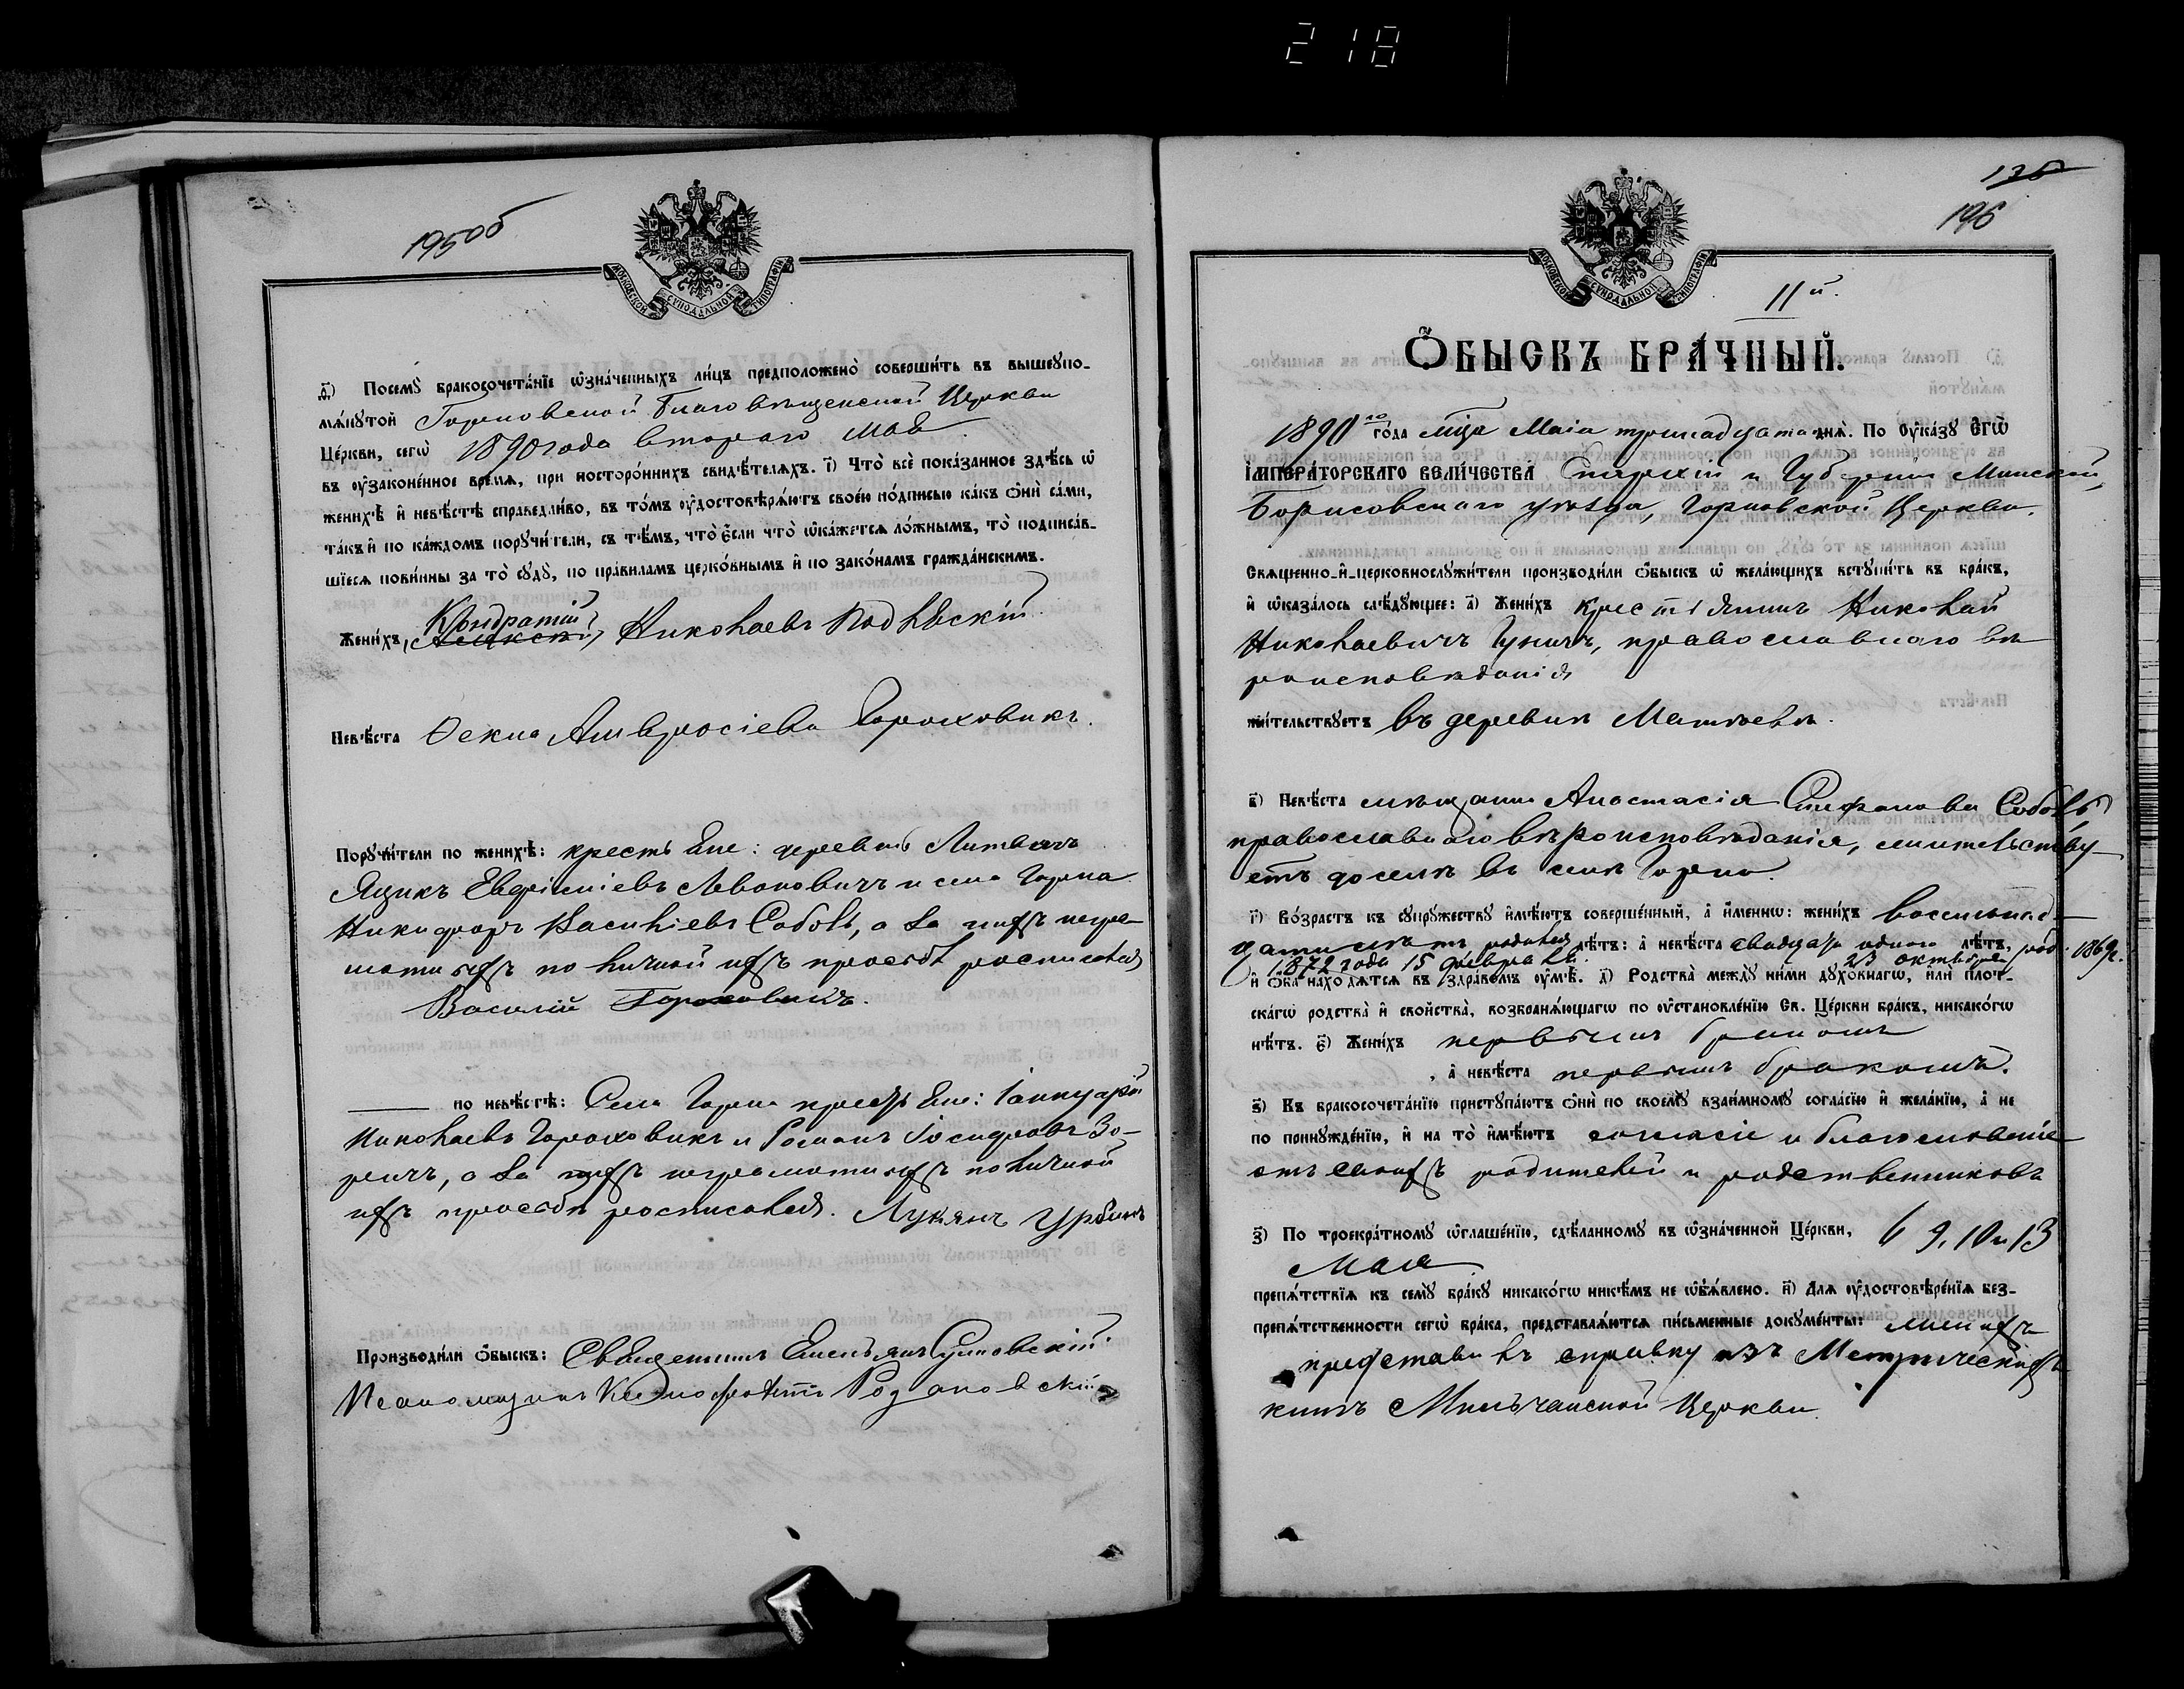 218
195об
МОСКОВСКОЙ СѴНОДАЛЬНОЙ ТИПОГРАФІИ
Посемꙋ бракосочета́нїе ѡ҆зна́ченныхъ ли́цъ предположено̀ соверши́ть въ вышеꙋпо-
мѧ́нꙋтой Горновской Благовѣщенской Церкви
Це́ркви, сегѡ̀ 1890 года втораго мая
въ ᲂу҆зако́ненное вре́мѧ, при посторо́ннихъ свидѣ́телѧхъ. і҃) Что̀ всѐ пока́занное здѣ́сь ѡ҆
женихѣ̀ и҆ невѣ́стѣ справедли́во, въ то́мъ ᲂу҆достовѣрѧ́ютъ свое́ю по́дписью ка́къ ѻ҆нѝ са́ми,
та́къ и҆ по ка́ждомъ порꙋчи́тели, съ тѣ́мъ, что̀ є҆́сли что̀ ѡ҆ка́жетсѧ ло́жнымъ, то̀ подписа́в-
шїесѧ пови́нны за то̀ сꙋдꙋ̀, по пра́виламъ церко́внымъ и҆ по зако́намъ гражда́нскимъ.
Кондратій
Жени́хъ, Николаевъ Подлѣскій
Невѣ́ста Ѳекла Амвросіева Гороховикъ.
Порꙋчи́тели по женихѣ̀: крестьяне: деревни Литвичъ
Яцукъ Евфиміевъ Левоновичъ и села Горна
Никифоръ Василіевъ Соболь, а за нихъ негра-
мотныхъ по личной ихъ просьбѣ росписался
Василій Гороховикъ.
по невѣ́стѣ: Села Горна крестьяне: Іаннуарій
Николаевъ Гороховикъ и Романъ
а за нихъ неграмотныхъ по личной
ихъ просьбѣ росписался. Лукянъ
Производи́ли ѻ҆́быскъ: Священникъ Емельянъ
Псаломщикъ
196
11й.
ѺБЫСКЪ БРАЧНЫЙ.
1890го го́да мца Маія тринадцата днѧ̀. По ᲂу҆ка́зꙋ Є҆гѡ̀
І҆МПЕРА́ТОРСКАГО ВЕЛИ́ЧЕСТВА Епархіи и Губерніи Минской,
Борисовскаго уѣзда, Горновской Церкви.
Свѧще́нно-и҆-церковнослꙋжи́тели производи́ли ѻ҆́быскъ ѡ҆ жела́ющихъ встꙋпи́ть въ бра́къ,
и҆ ѡ҆каза́лось слѣ́дꙋющее: а҃) Жени́хъ крестьянинъ Николай
Николаевичъ православнаго вѣ
роисповѣданія
жи́тельствꙋетъ въ деревнѣ Маткевѣ.
в҃) Невѣ́ста мѣщанка Анастасія Стефанова Соболь,
православнаго вѣроисповѣданія, жительству-
етъ доселѣ въ селѣ Горно.
г҃) Во́зрастъ къ сꙋпрꙋ́жествꙋ и҆мѣ́ютъ соверше́нный, а҆ и҆́менно: жени́хъ восемнад-
цати лѣтъ родился лѣ́тъ: а҆ невѣ́ста двадцати одного лѣ́тъ, род. 1869г.
1872 года 15 февраля. 23 октября
и҆ ѻ҆́ба нахо́дѧтсѧ въ здра́вомъ ᲂу҆мѣ̀. д҃) Родства̀ междꙋ̀ ни́ми дꙋхо́внагѡ, и҆лѝ плот-
ска́гѡ родства̀ и҆ сво́йства, возбранѧ́ющагѡ по ᲂу҆становле́нїю Св. Це́ркви бра́къ, никако́гѡ
нѣ́тъ. є҃) Жени́хъ первымъ бракомъ
, а҆ невѣ́ста первымъ бракомъ.
ѕ҃) Къ бракосочета́нїю пристꙋпа́ютъ ѻ҆нѝ по своемꙋ̀ взаи́мномꙋ согла́сїю и҆ жела́нїю, а҆ не
по принꙋжде́нїю, и҆ на то̀ и҆мѣ́ютъ согласіе и благословеніе
отъ своихъ родителей и родственниковъ
з҃) По троекра́тномꙋ ѡ҆глаше́нїю, сдѣ́ланномꙋ въ ѡ҆зна́ченной Це́ркви, 6 9, 10 и 13
Мая
препѧ́тствїѧ къ семꙋ̀ бра́кꙋ никако́гѡ никѣ́мъ не ѡ҆б̾ѧ́влено. и҃) Длѧ ᲂу҆достовѣре́нїѧ без-
препѧ́тственности сегѡ̀ бра́ка, представлѧ́ютсѧ пи́сьменные докꙋме́нты:
представилъ справку изъ Метрическихъ
книгъ Мильчанской Церкви.